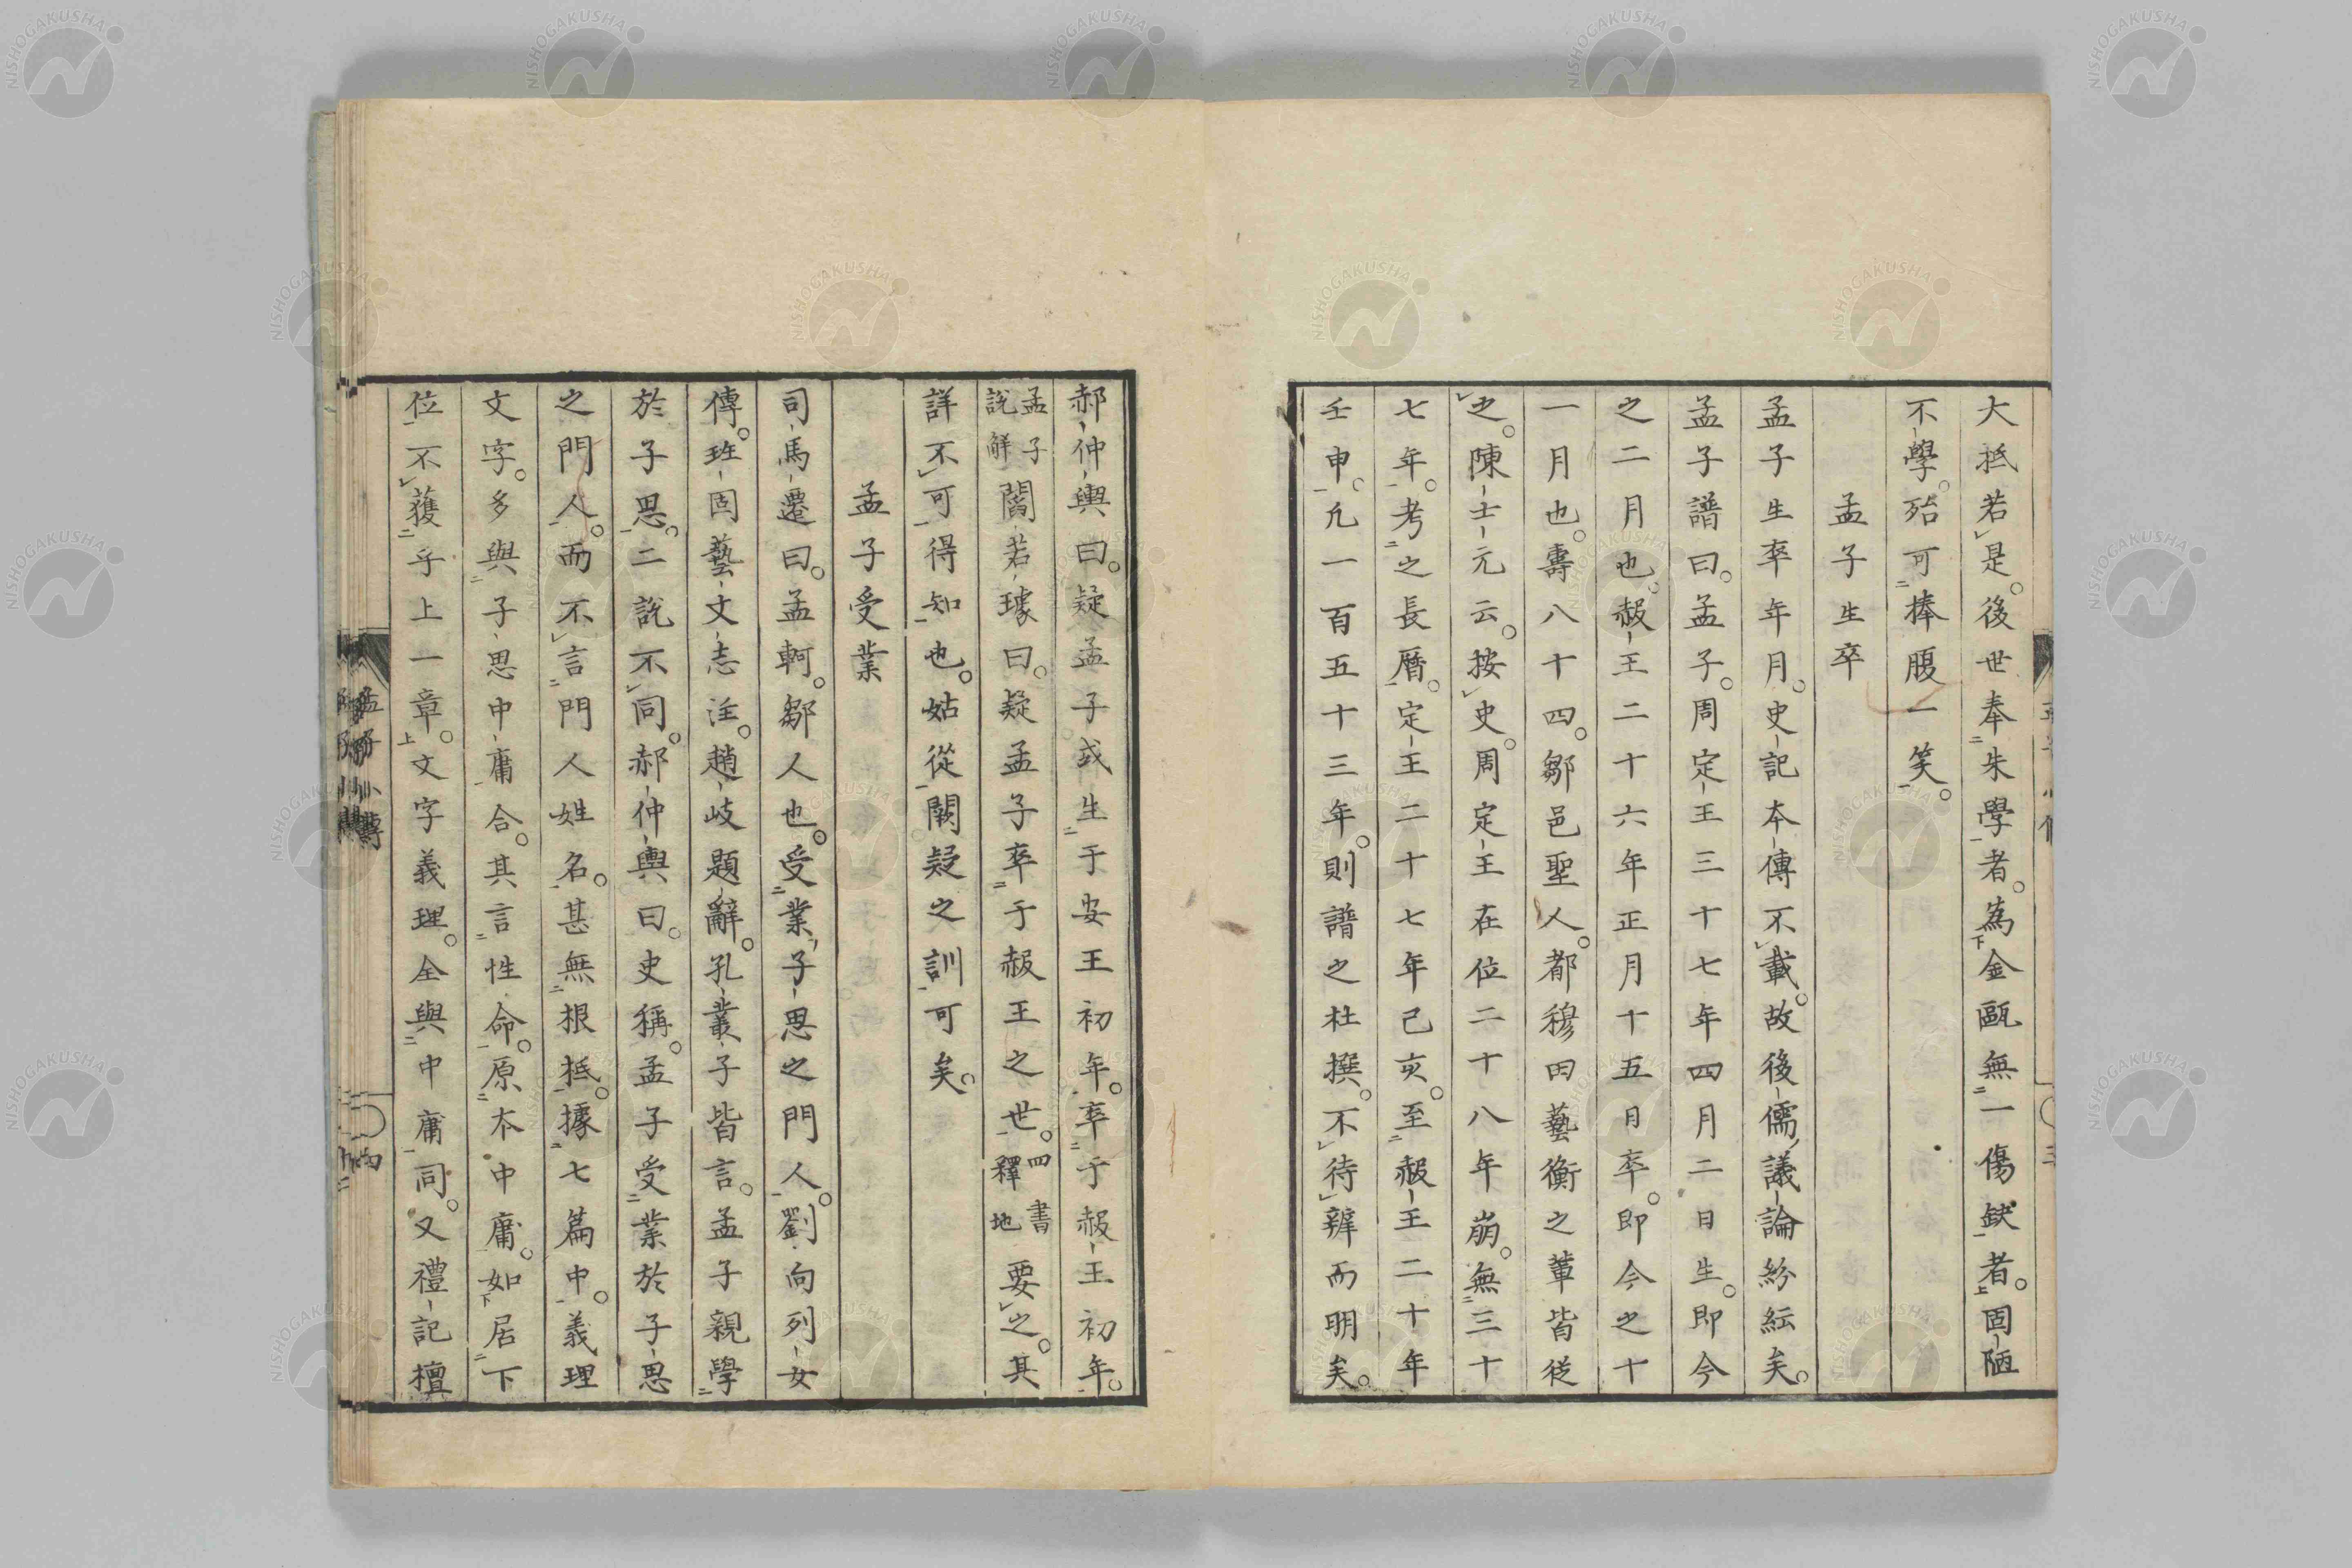 大抵若是。後世奉朱學者。為金甌無一傷缺者。固陋
不學。殆可捧腹一笑。
孟子生卒
孟子生卒年月。史記本傳不載。故後儒議論紛紜矣。
孟子譜曰。孟子。周定王三十七年四月二日生。即今
之二月也。赧王二十六年正月十五日卒。即今之十
一月也。壽八十四。鄒邑聖人。都穆田藝衡之輩皆從
之。陳士元云。按史。周定王在位二十八年崩。無三十
七年。考之長曆。定王二十七年己亥。至赧王二十年
壬申。凡一百五十三年。則譜之杜撰。不待辨而明矣。
郝仲輿曰。疑孟子或生于安王初年。卒于赧王初年。
孟子說解閻若璩曰。疑孟子卒于赧王之世。四書釋地要之。其
詳不可得知也。姑從闕疑之訓可矣。
孟子受業
司馬遷曰。孟軻。鄒人也。受業子思之門人。劉向列女
傳。班固藝文志注。趙岐題辭。孔叢子皆言。孟子親學
於子思。二說不同。郝仲輿曰。史稱。孟子受業於子思
之門人。而不言門人姓名。甚無根抵。據七篇中。義理
文字。多與子思中庸合。其言性命。原本中庸。如居下
位不獲乎上一章。文字義理。全與中庸同。又禮記檀
孟子小傳
四
NISHOGAKUSHA